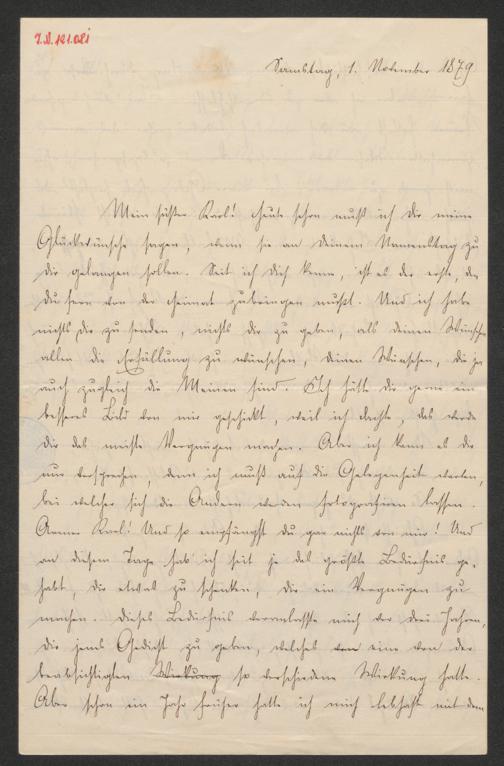 I.N. 121.081
Samstag, 1. November 1879
Mein süßer Karl! Heute schon muß ich Dir meine
Glückwünsche sagen, wenn sie an Deinem Namenstag zu
Dir gelangen sollen. Seit ich Dich kenne, ist es der erste, den
Du fern von der Heimat zubringen mußt. Und ich habe
nichts Dir zu senden, nichts Dir zu geben, als Deinen Wünschen
allen die Erfüllung zu wünschen, Deinen Wünschen, die ja
auch zugleich die Meinen sind. Ich hätte Dir gerne ein
besseres Bild von mir geschickt, weil ich dachte, das werde
Dir das meiste Vergnügen machen. Aber ich kann es Dir
nur versprechen, denn ich muß auf die Gelegenheit warten,
bei welcher sich die Andern werden fotografiren lassen.
Armer Karl! Und so empfängst Du gar nichts von mir! Und
an diesem Tage hab' ich seit je das größte Bedürfnis ge-
habt, Dir etwas zu schenken, Dir ein Vergnügen zu
machen. Dieses Bedürfnis veranlasste mich vor drei Jahren,
Dir jenes Gedicht zu geben, welches von eine von der
beabsichtigten Wirkung so verschiedene Wirkung hatte.
Aber schon ein Jahr früher hatte ich mich lebhaft mit dem